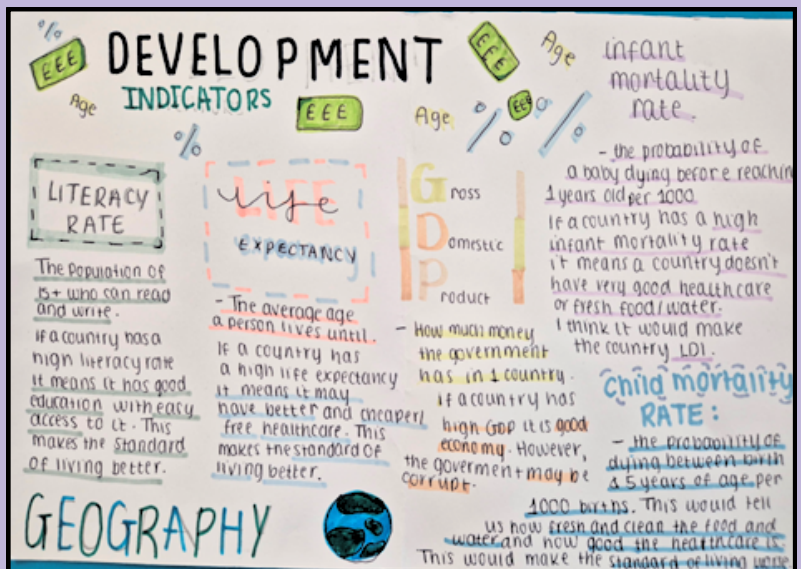 DEVELOPMENT
INDICATORS
%
£££
Age
%
£££
£££
Age
Age
%
£££
%
LITERACY
RATE
The population of
15+ who can read
and write.
If a country has a
high literacy rate
it means it has good
education with easy
access to it. This
makes the standard
of living better.
LIFE
life
EXPECTANCY
- The average age
a person lives until.
If a country has
a high life expectancy
it means it may
have better and cheaper/
free healthcare. This
makes the standard of
living better.
Gross
Domestic
Product
- How much money
the government
has in 1 country.
If a country has
high GDP it is good
economy. However,
the goverment may be
corrupt.
infant
mortality
rate.
- the probability of
a baby dying before reaching
1 years old per 1000
If a country has a high
infant mortality rate
it means a country doesn't
have very good healthcare
or fresh food/water.
I think it would make
the country
child mortality
RATE:
- the probability of
dying between birth
& 5 years of age per
1000 births. This would tell
us how fresh and clean the food and
water and how good the healthcare is.
This would make the standard of living
GEOGRAPHY